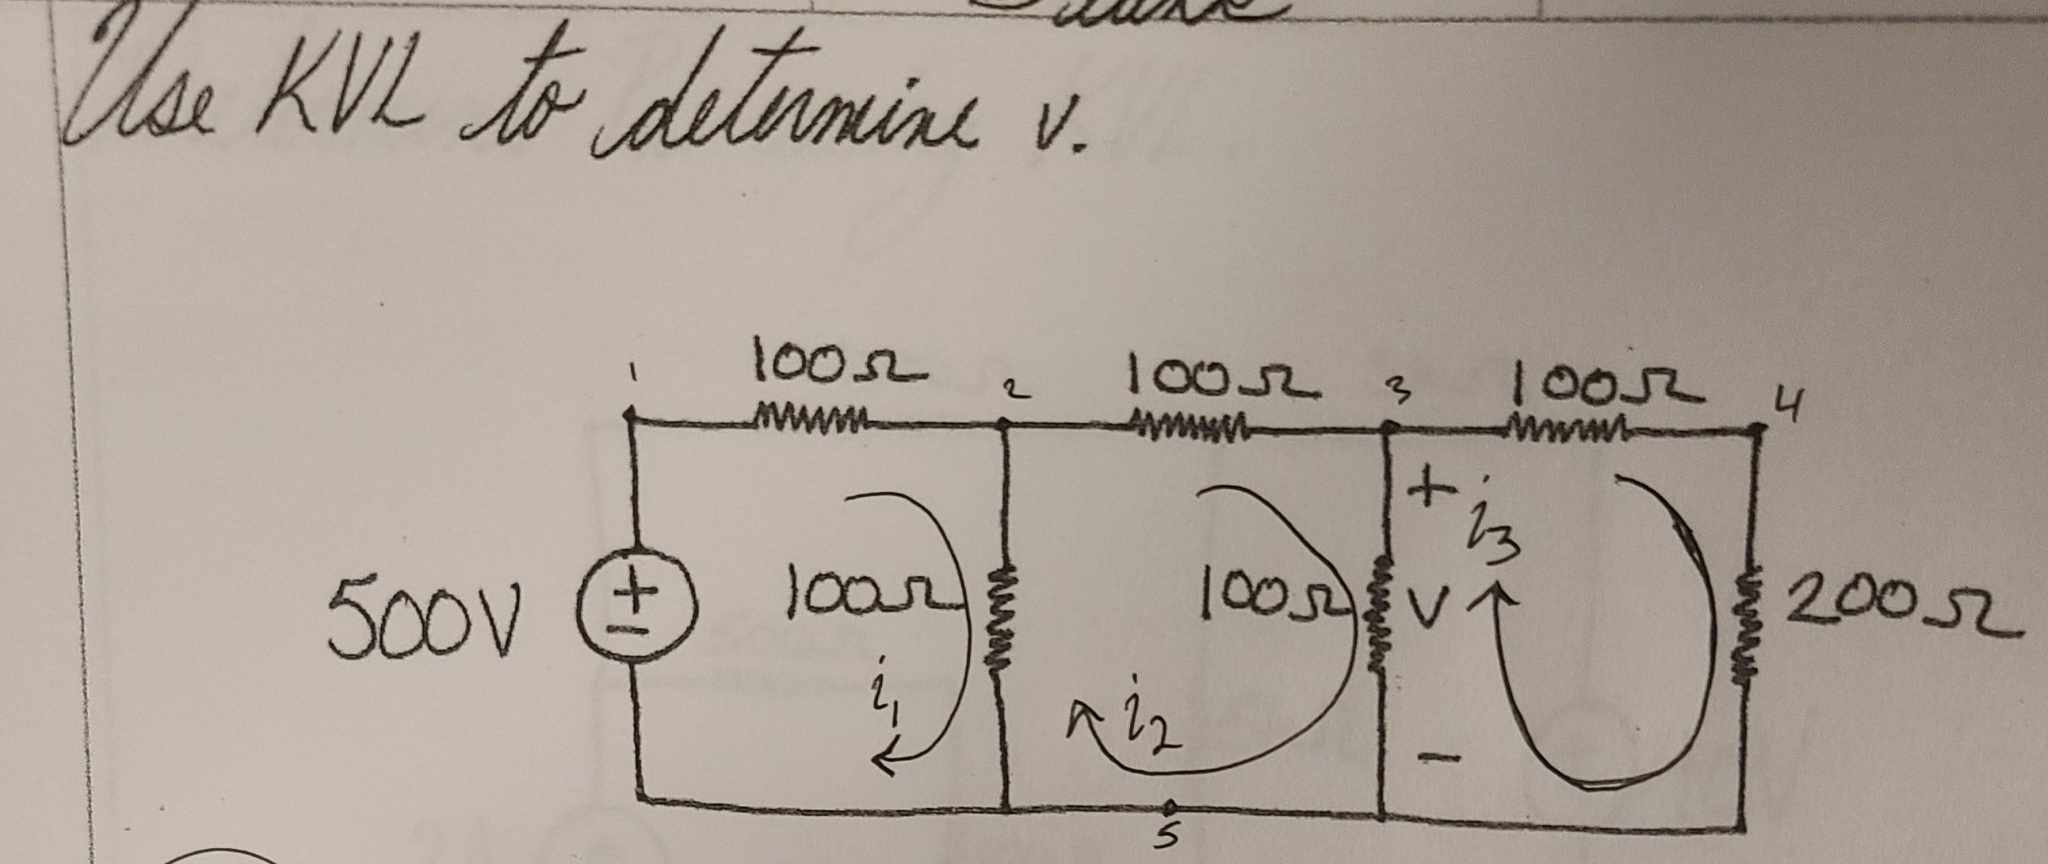 Use KVL to determine v.
1 100Ω 2 100Ω 3 100Ω 4
+ i3
500V + - 100Ω 100Ω V 200Ω
i1 i2 -
5